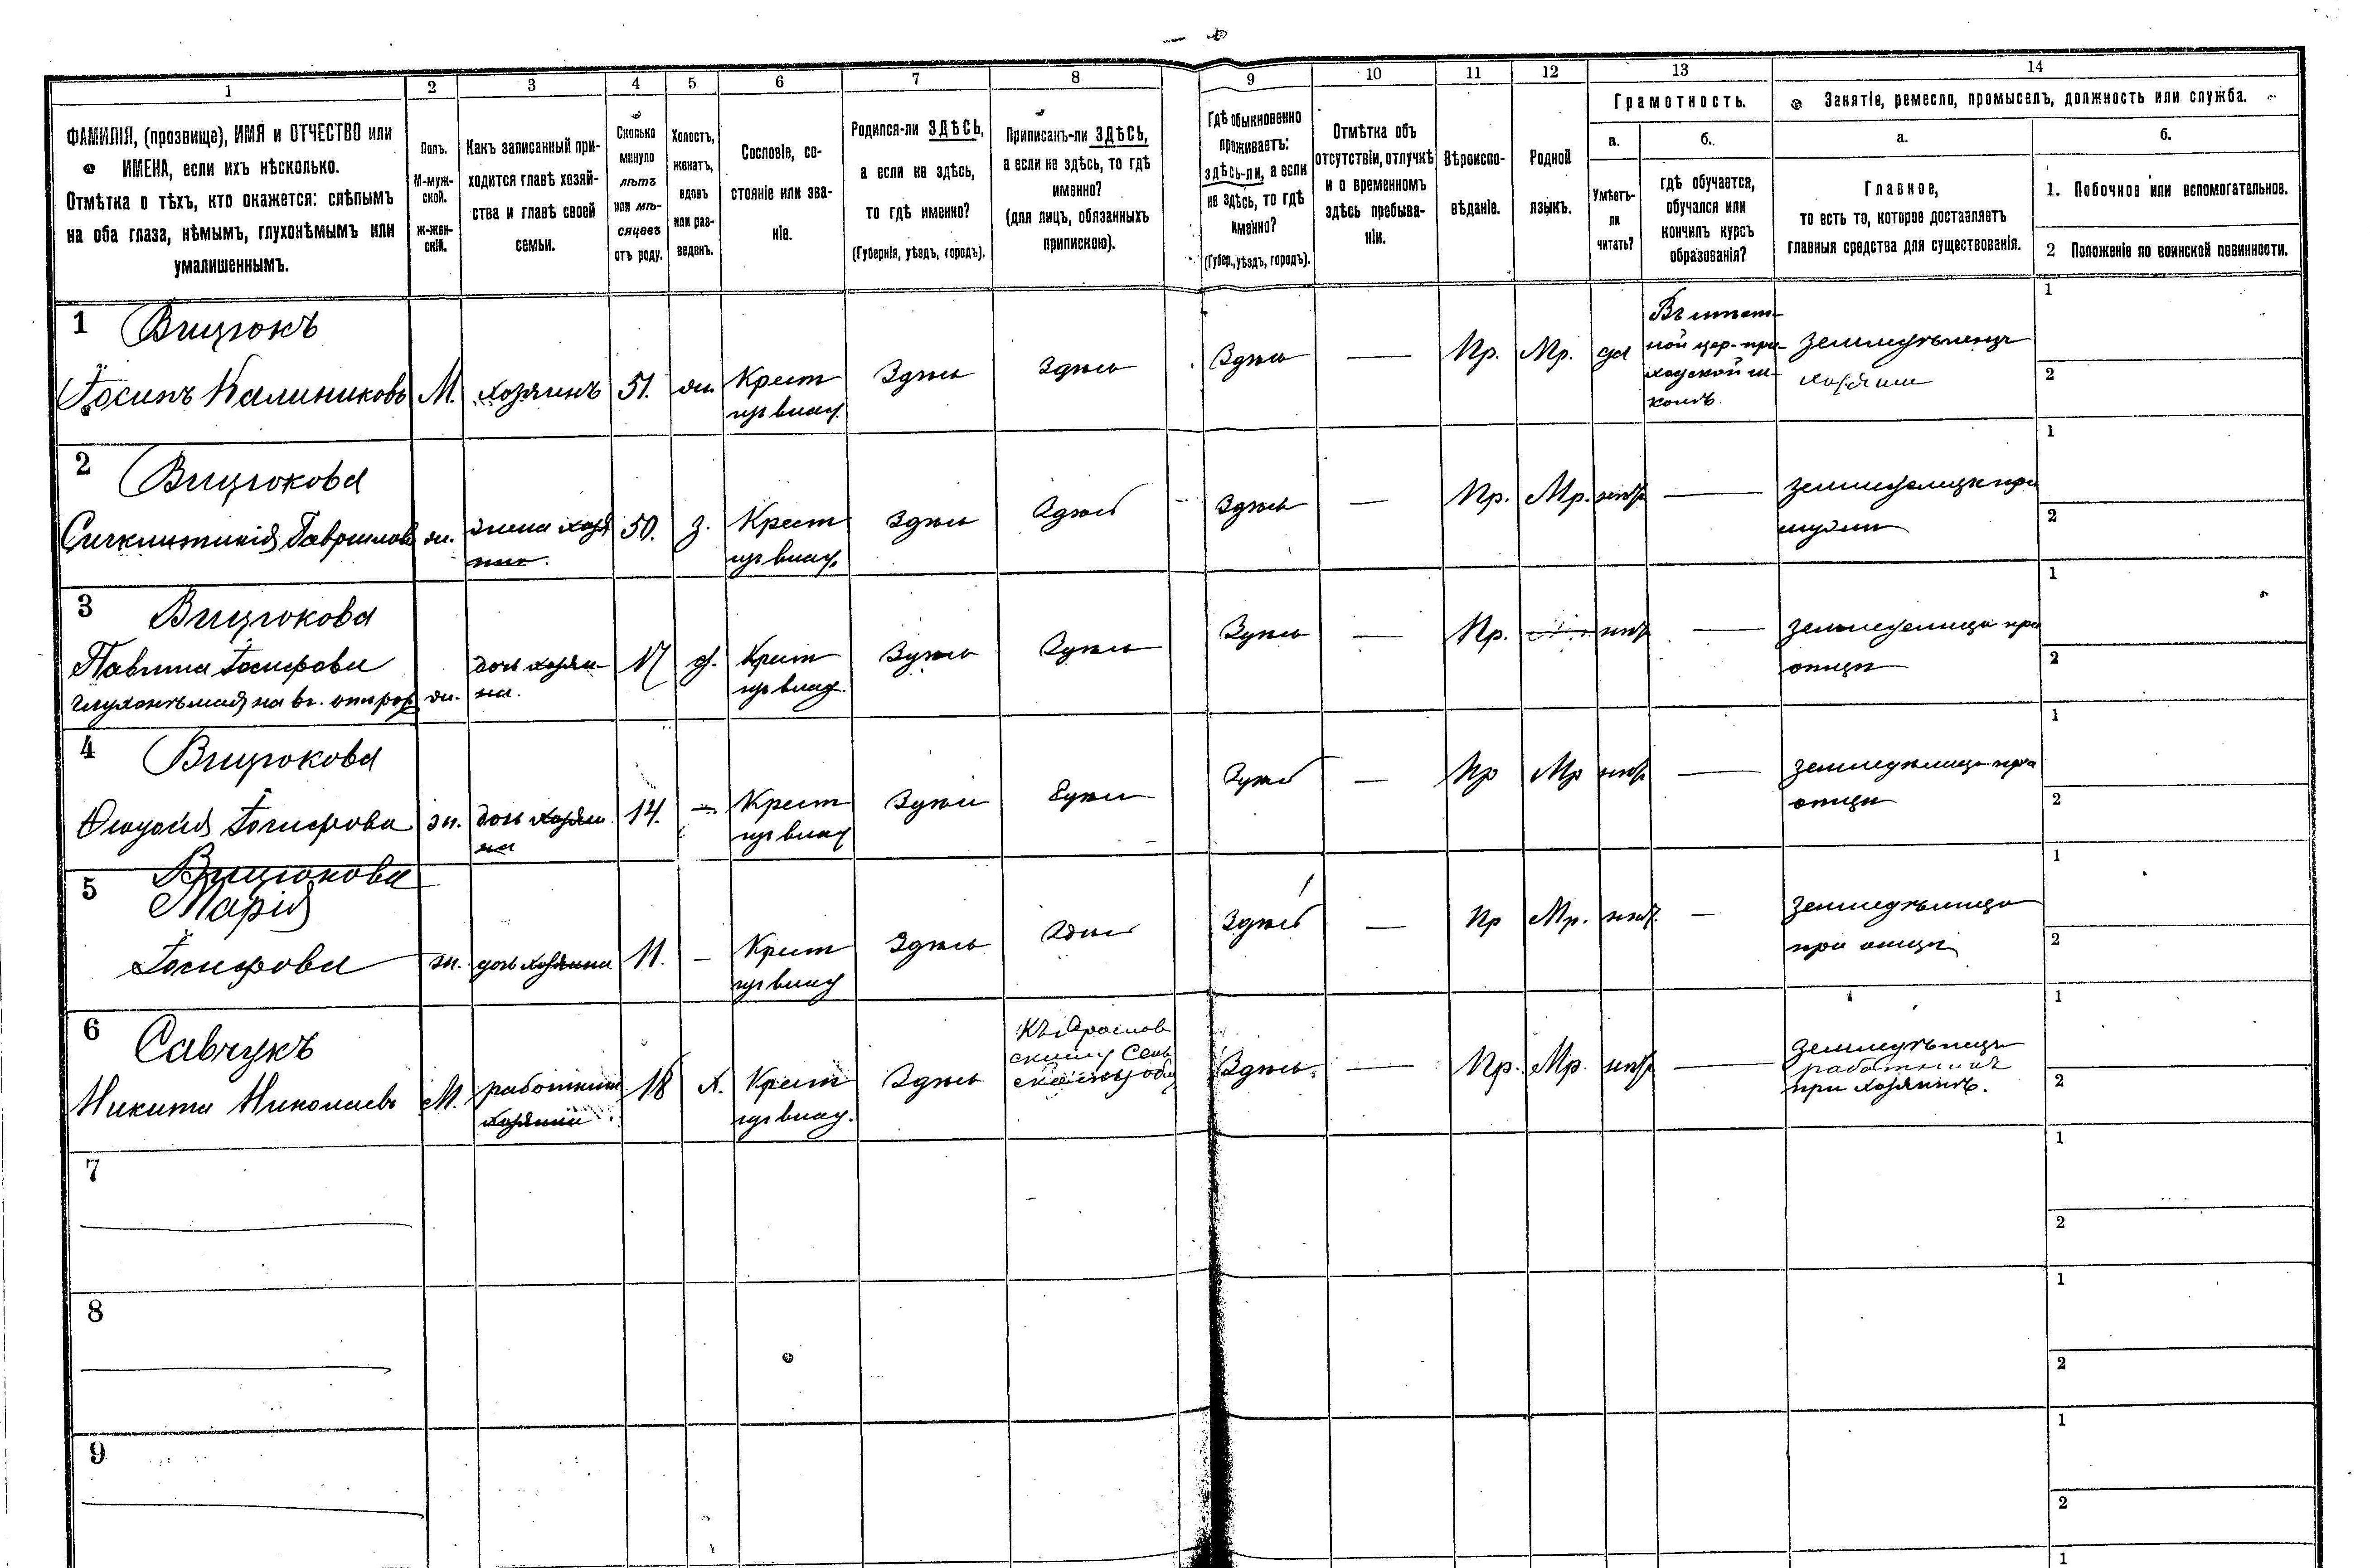 1 2 3 4 5 6 7 8 9 10 11 12 13 14
ФАМИЛІЯ, (прозвище), ИМЯ и ОТЧЕСТВО или
ИМЕНА, если ихъ нѣсколько.
Отмѣтка о тѣхъ, кто окажется: слѣпымъ
на оба глаза, нѣмымъ, глухонѣмымъ или
умалишеннымъ.
Полъ.
М-муж-
ской.
ж-жен-
скій.
Какъ записанный при-
ходится главѣ хозяй-
ства и главѣ своей
семьи.
Сколько
минуло
лѣтъ
или мѣ-
сяцевъ
отъ роду.
Холостъ,
женатъ,
вдовъ
или раз-
веденъ.
Сословіе, со-
стояніе или зва-
ніе.
Родился-ли ЗДѢСЬ,
а если не здѣсь,
то гдѣ именно?
(Губернія, уѣздъ, городъ).
Приписанъ-ли ЗДѢСЬ,
а если не здѣсь, то гдѣ
именно?
(для лицъ, обязанныхъ
припискою).
Гдѣ обыкновенно
проживаетъ:
здѣсь-ли, а если
не здѣсь, то гдѣ
именно?
(Губер., уѣздъ, городъ).
Отмѣтка объ
отсутствіи, отлучкѣ
и о временномъ
здѣсь пребыва-
ніи.
Вѣроиспо-
вѣданіе.
Родной
языкъ.
Грамотность.
а.
Умѣетъ-
ли
читать?
б.
гдѣ обучается,
обучался или
кончилъ курсъ
образованія?
Занятіе, ремесло, промыселъ, должность или служба.
а.
Главное,
то есть то, которое доставляетъ
главныя средства для существованія.
б.
1. Побочное или вспомогательное.
2 Положеніе по воинской повинности.
1 Вицюкъ
Іосипъ Калиниковъ М. хозяинъ 51. ж. Крест
из влад.
Здѣсь Здѣсь Здѣсь — Пр. Мр. да
ной цер.-при-
ходской ш-
колѣ.
земледѣлецъ
хозяинъ
1
2
2 Вицюкова
Гаврилова ж. жена хозя
ина.
50. з. Крест
из влад.
Здѣсь Здѣсь Здѣсь — Пр. Мр. нѣт —
земледелица при
мужѣ
1
2
3 Вицюкова
Іосифова
глухонѣмая ж.
дочь хозяи-
на.
17 д. Крест
из влад.
Здѣсь Здѣсь Здѣсь — Пр. нѣт —
земледелица при
отцѣ
1
2
4 Вицюкова
Іосифова ж. дочь хозяи
на
14. — Крест
из влад
Здѣсь Здѣсь Здѣсь — Пр Мр нѣт —
земледѣлица при
отцѣ
1
2
5 Вицюкова
Марія
Іосифова ж. дочь хозяина 11. — Крест
из влад
Здѣсь Здѣсь Здѣсь — Пр Мр. нѣт. —
земледѣлица
при отцѣ
1
2
6 Савчукъ
Никита Николаевъ М. работник
хозяина
18 х. Крест
из влад.
Здѣсь
Здѣсь — Пр. Мр. нѣт —
земледѣлецъ
работникъ
при хозяинѣ.
1
2
7
1
2
8
1
2
9
1
2
1